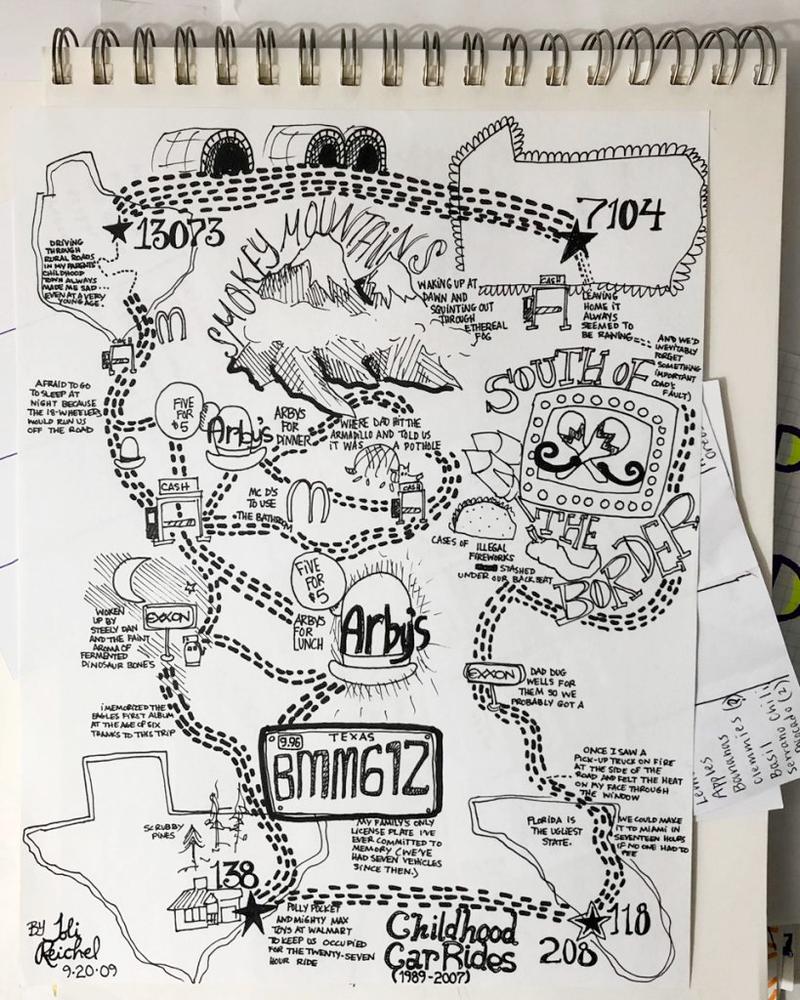 7104
13073
SMOKEY MOUNTAINS
DRIVING
THROUGH
RURAL ROADS
IN MY PARENTS'
CHILDHOOD
TOWN ALWAYS
MADE ME SAD...
EVEN AT A VERY
YOUNG AGE.
WAKING UP AT
DAWN AND
SQUINTING OUT
THROUGH
ETHEREAL
FOG
CASH
LEAVING
HOME IT
ALWAYS
SEEMED TO
BE RAINING
AND WE'D
INEVITABLY
FORGET
SOMETHING
IMPORTANT
(DAD'S
FAULT)
SOUTH OF
THE
BORDER
AFRAID TO GO
TO SLEEP AT
NIGHT BECAUSE
THE 18-WHEELERS
WOULD RUN US
OFF THE ROAD
FIVE
FOR
$5
Arby's
ARBYS
FOR
DINNER
WHERE DAD HIT THE
ARMADILLO AND TOLD US
IT WAS A POTHOLE
CASH
MC D'S
TO USE
THE BATHROOM
CASH
CASES OF ILLEGAL
FIREWORKS
STASHED
UNDER OUR BACKSEAT
WOKEN
UP BY
STEELY DAN
AND THE FAINT
AROMA OF
FERMENTED
DINOSAUR BONES
EXXON
FIVE
FOR
$5
ARBYS
FOR
LUNCH
Arby's
EXXON
DAD DUG
WELLS FOR
THEM SO WE
PROBABLY GOT A
I MEMORIZED THE
EAGLES FIRST ALBUM
AT THE AGE OF SIX
THANKS TO THIS TRIP
TEXAS
9.96
BMM61Z
ONCE I SAW A
PICK-UP TRUCK ON FIRE
AT THE SIDE OF THE
ROAD AND FELT THE HEAT
ON MY FACE THROUGH
THE WINDOW
SCRUBBY
PINES
MY FAMILY'S ONLY
LICENSE PLATE I'VE
EVER COMMITTED TO
MEMORY (WE'VE
HAD SEVEN VEHICLES
SINCE THEN.)
FLORIDA IS
THE UGLIEST
STATE.
WE COULD MAKE
IT TO MIAMI IN
SEVENTEEN HOURS
IF NO ONE HAD TO
PEE
138
POLLY POCKET
AND MIGHTY MAX
TOYS AT WALMART
TO KEEP US OCCUPIED
FOR THE TWENTY-SEVEN
HOUR RIDE
118
208
Childhood
Car Rides
(1989-2007)
BY
Reichel
9.20.09
Apples
Bananas
Clemmies
Basil
Serrano Chili
Avocado (2)